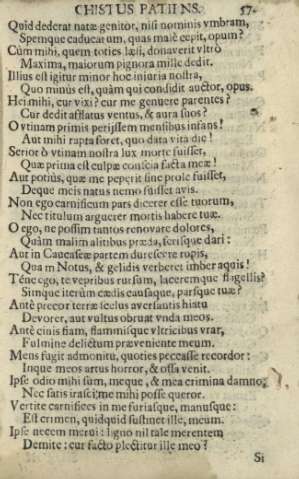 CHISTUS PATIINS. 57.
Quid dederat natæ genitor, nisi nominis vmbram,
Spemque caducarum, quas malè cepit, opum?
Cùm mihi, quem toties læsi, donaverit vltrò
Maxima, maiorum pignora mille dedit.
Illius est igitur minor hoc iniuria nostra,
Quo minus est, quàm qui condidit auctor, opus.
Hei mihi, cur vixi? cur me genuere parentes?
Cur dedit afflatus ventus, & aura suos?
O vtinam primis perijssem mensibus infans!
Aut mihi rapta foret, quo data vita die!
Serior ò vtinam nostra lux morte fuisset,
Quæ prima est culpæ conscia facta meæ!
Aut potiùs, quæ me peperit sine prole fuisset,
Deque meis natus nemo fuisset avis.
Non ego carnificum pars dicerer esse tuorum,
Nec titulum arguerer mortis habere tuæ.
O ego, ne possim tantos renovare dolores,
Quàm malim alitibus præda, ferisque dari:
Aut in Caucaseæ partem durescere rupis,
Quam Notus, & gelidis verberet imber aquis!
Téne ego, te vepribus rursum, laceremque flagellis?
Simque iterùm cædis causaque, parsque tuæ?
Antè precor terræ scelus aversantis hiatu
Devorer, aut vultus obruat vnda meos.
Antè cinis fiam, flammisque vltricibus vrar,
Fulmine delictum præveniente meum.
Mens fugit admonitu, quoties peccasse recordor:
Inque meos artus horror, & ossa venit.
Ipse odio mihi sum, meque, & mea crimina damno,
Nec satis irasci me mihi posse queror.
Vertite carnifices in me furiasque, manusque:
Est crimen, quidquid sustinet ille, meum.
Ipse necem merui: ligno nil tale merentem
Demite: cur facto plectitur ille meo?
Si